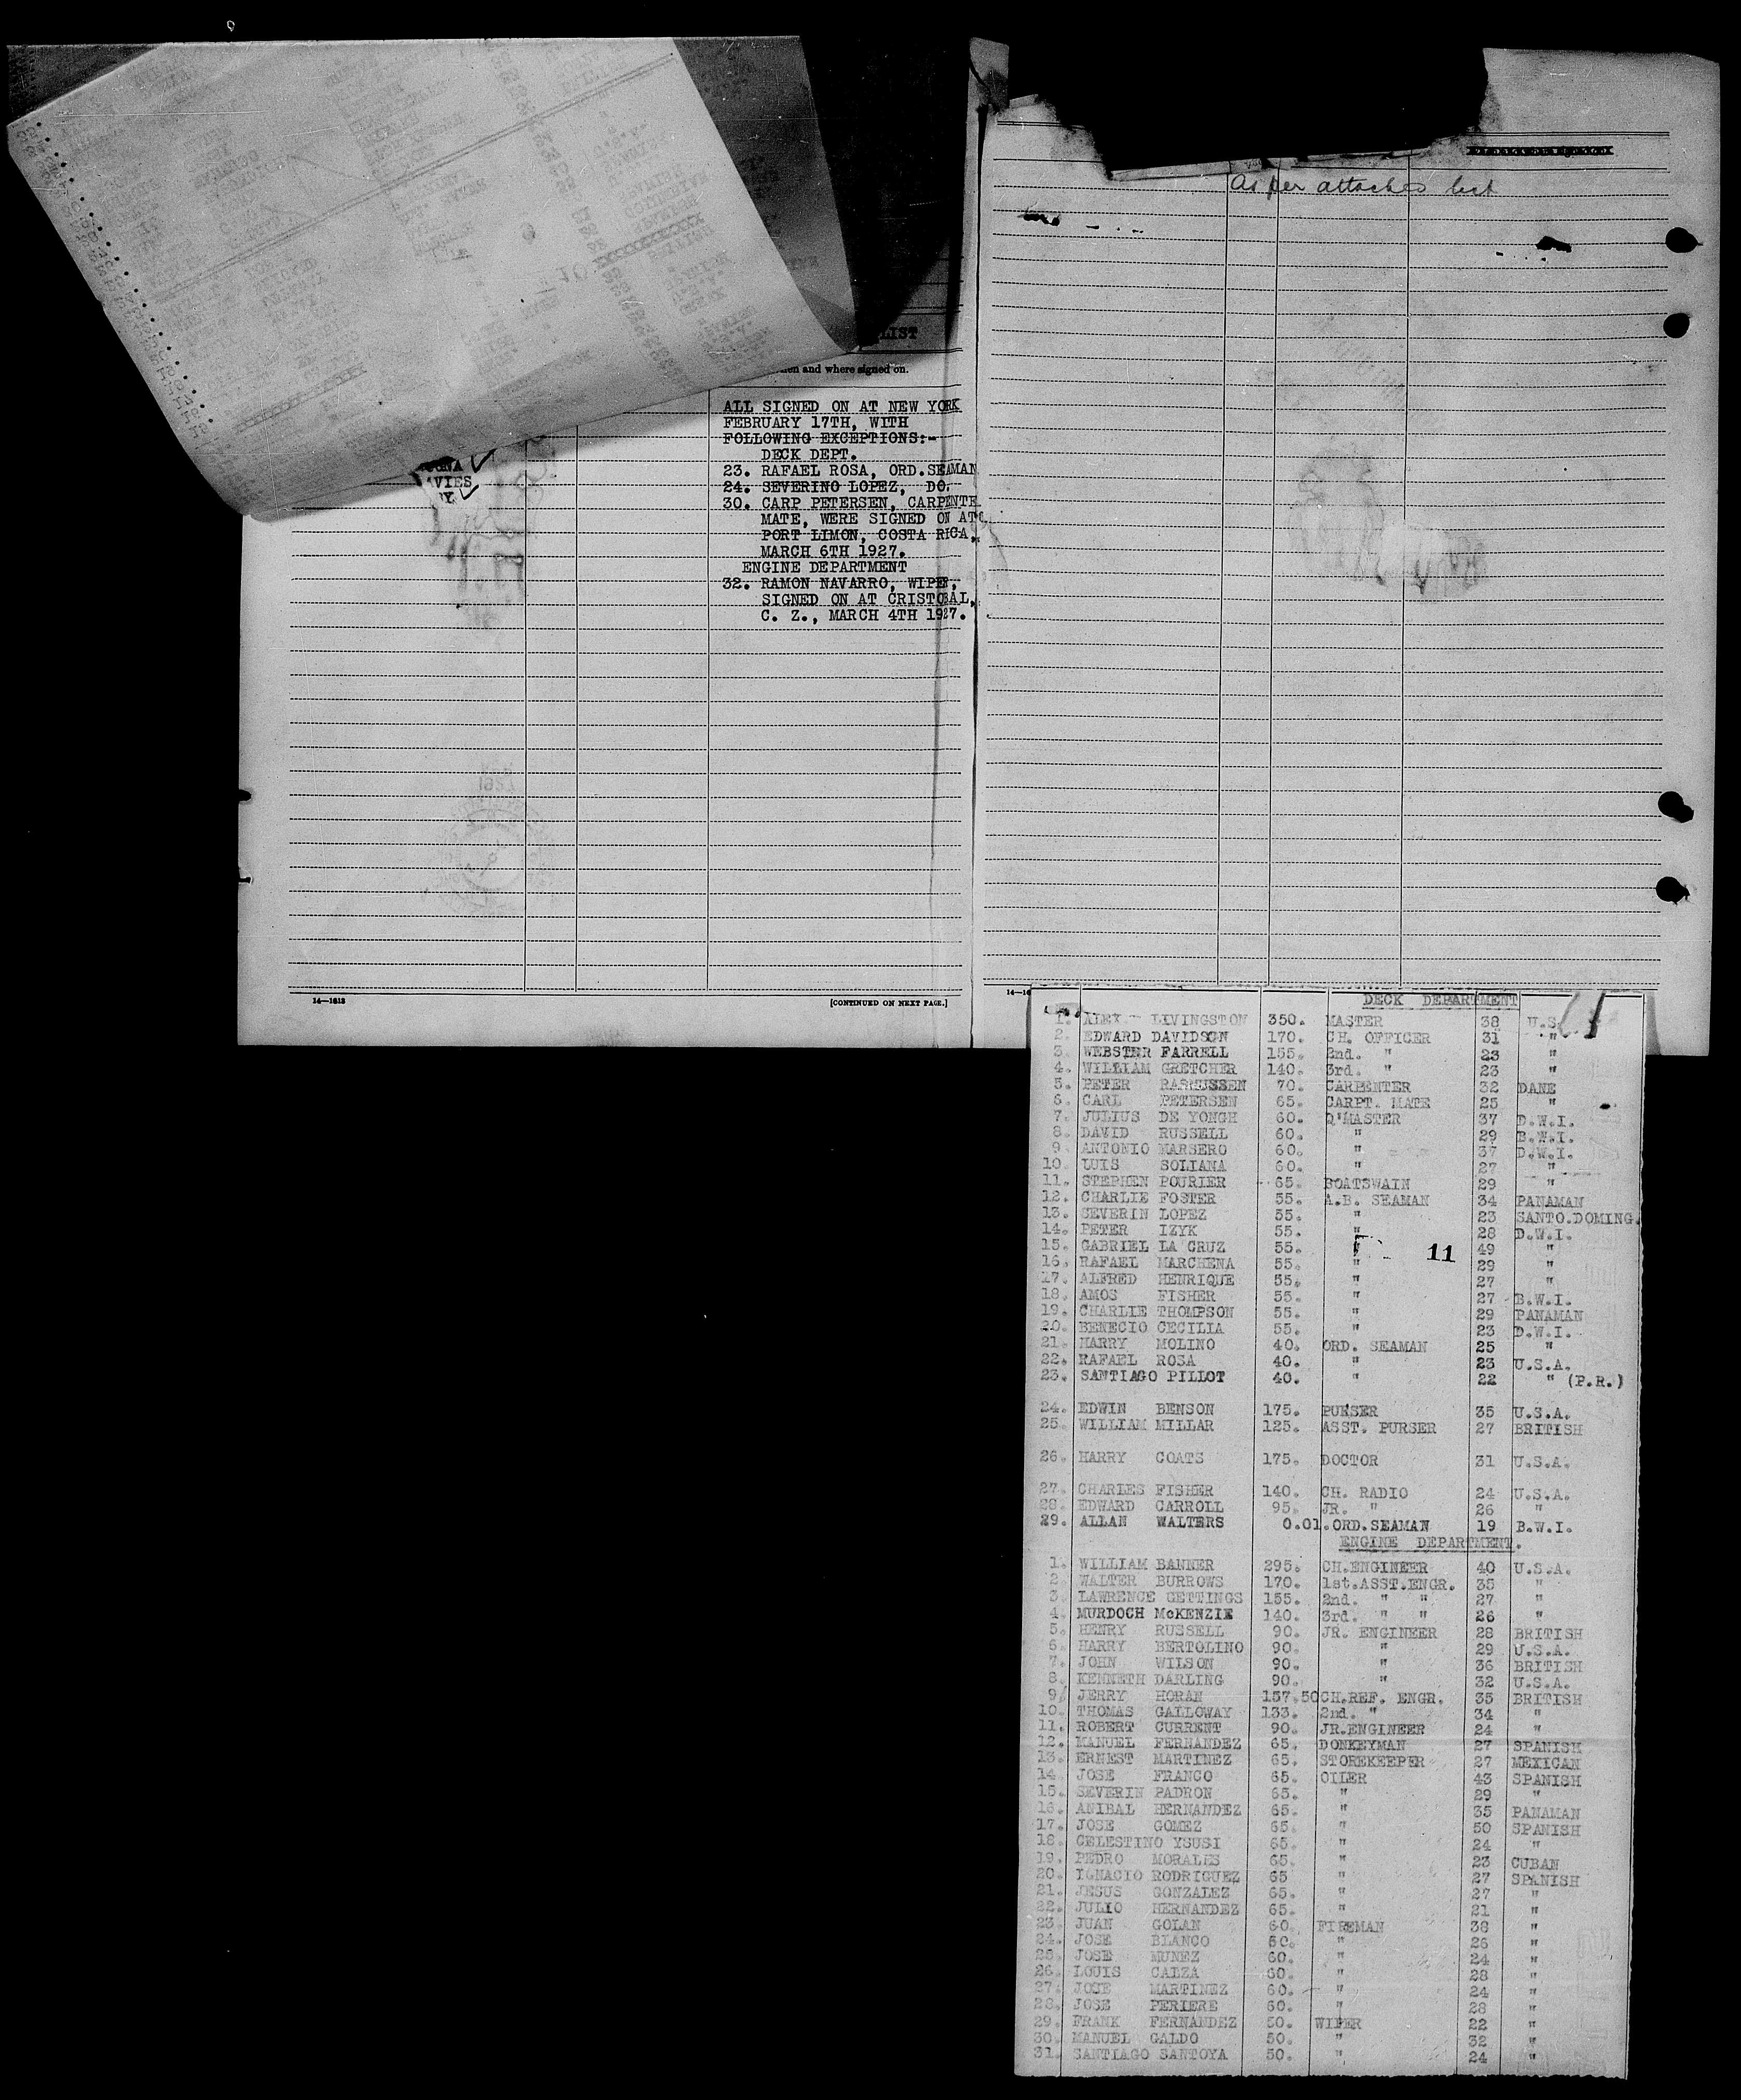 LIST
and where signed on.
ALL SIGNED ON AT NEW YORK
FEBRUARY 17TH, WITH
FOLLOWING EXCEPTIONS:-
DECK DEPT.
23. RAFAEL ROSA, ORD.SEAMAN
24. SEVERINO LOPEZ, DO.
30. CARP PETERSEN, CARPENTE
MATE, WERE SIGNED ON AT
PORT LIMON, COSTA RICA,
MARCH 6TH 1927.
ENGINE DEPARTMENT
32. RAMON NAVARRO, WIPER,
SIGNED ON AT CRISTOBAL,
C. Z., MARCH 4TH 1927.
14—1613
[CONTINUED ON NEXT PAGE.]
As per attached list
DECK DEPARTMENT
1. ALEX LIVINGSTON 350. MASTER 38 U.S.
2. EDWARD DAVIDSON 170. CH. OFFICER 31 "
3. WEBSTER FARRELL 155. 2nd. " 23 "
4. WILLIAM GRETCHER 140. 3rd. " 23 "
5. PETER RASMUSSEN 70. CARPENTER 32 DANE
6. CARL PETERSEN 65. CARPT. MATE 25 "
7. JULIUS DE YONGH 60. Q'MASTER 37 D.W.I.
8. DAVID RUSSELL 60. " 29 B.W.I.
9. ANTONIO MARSERO 60. " 37 D.W.I.
10. LUIS SOLIANA 60. " 27 "
11. STEPHEN POURIER 65. BOATSWAIN 29 "
12. CHARLIE FOSTER 55. A.B. SEAMAN 34 PANAMAN
13. SEVERIN LOPEZ 55. " 23 SANTO.DOMING.
14. PETER IZYK 55. " 28 D.W.I.
15. GABRIEL LA CRUZ 55. " 11 49 "
16. RAFAEL MARCHENA 55. " 29 "
17. ALFRED HENRIQUE 55. " 27 "
18. AMOS FISHER 55. " 27 B.W.I.
19. CHARLIE THOMPSON 55. " 29 PANAMAN
20. BENECIO CECILIA 55. " 23 D.W.I.
21. HARRY MOLINO 40. ORD. SEAMAN 25 "
22. RAFAEL ROSA 40. " 23 U.S.A.
23. SANTIAGO PILLOT 40. " 22 " (P.R.)
24. EDWIN BENSON 175. PURSER 35 U.S.A.
25. WILLIAM MILLAR 125. ASST. PURSER 27 BRITISH
26. HARRY COATS 175. DOCTOR 31 U.S.A.
27. CHARLES FISHER 140. CH. RADIO 24 U.S.A.
28. EDWARD CARROLL 95. JR. " 26 "
29. ALLAN WALTERS 0.01. ORD.SEAMAN 19 B.W.I.
ENGINE DEPARTMENT.
1. WILLIAM BANNER 295. CH.ENGINEER 40 U.S.A.
2. WALTER BURROWS 170. 1st.ASST.ENGR. 35 "
3. LAWRENCE GETTINGS 155. 2nd. " " 27 "
4. MURDOCH McKENZIE 140. 3rd. " " 26 "
5. HENRY RUSSELL 90. JR. ENGINEER 28 BRITISH
6. HARRY BERTOLINO 90. " 29 U.S.A.
7. JOHN WILSON 90. " 36 BRITISH
8. KENNETH DARLING 90. " 32 U.S.A.
9. JERRY HORAN 157.50 CH.REF. ENGR. 35 BRITISH
10. THOMAS GALLOWAY 133. 2nd. " 34 "
11. ROBERT CURRENT 90. JR.ENGINEER 24 "
12. MANUEL FERNANDEZ 65. DONKEYMAN 27 SPANISH
13. ERNEST MARTINEZ 65. STOREKEEPER 27 MEXICAN
14. JOSE FRANCO 65. OILER 43 SPANISH
15. SEVERIN PADRON 65. " 29 "
16. ANIBAL HERNANDEZ 65. " 35 PANAMAN
17. JOSE GOMEZ 65. " 50 SPANISH
18. CELESTINO YSUSI 65. " 24 "
19. PEDRO MORALES 65. " 23 CUBAN
20. IGNACIO RODRIGUEZ 65 " 27 SPANISH
21. JESUS GONZALEZ 65. " 27 "
22. JULIO HERNANDEZ 65. " 21 "
23. JUAN GOLAN 60. FIREMAN 38 "
24. JOSE BLANCO 50. " 26 "
25. JOSE MUNEZ 60. " 24 "
26. LOUIS CALZA 60. " 28 "
27. JOSE MARTINEZ 60. " 24 "
28. JOSE PERIERE 60. " 28 "
29. FRANK FERNANDEZ 50. WIPER 22 "
30. MANUEL GALDO 50. " 32 "
31. SANTIAGO SANTOYA 50. " 24 "